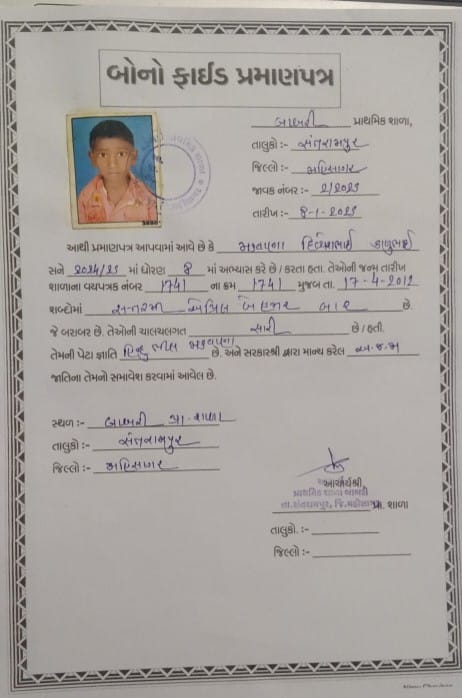 બોનો ફાઈડ પ્રમાણપત્ર
બાખરી પ્રાથમિક શાળા,
તાલુકો :- સંતરામપુર
જિલ્લો :- મહિસાગર
જાવક નંબર :- 2/2025
તારીખ :- 8-1-2025
આથી પ્રમાણપત્ર આપવામાં આવે છે કે
સને 2024/25 માં ધોરણ 8 માં અભ્યાસ કરે છે / કરતા હતા. તેઓની જન્મ તારીખ
શાળાના વયપત્રક નંબર 1741 ના ક્રમ 1741 મુજબ તા. 17-4-2012
શબ્દોમાં સત્તરમી એપ્રિલ બે હજાર બાર છે.
જે બરાબર છે. તેઓની ચાલચલગત સારી છે / હતી.
તેમની પેટા જ્ઞાતિ હિન્દુ ભીલ છે. અને સરકારશ્રી દ્વારા માન્ય કરેલ અ.જ.જા
જાતિના તેમનો સમાવેશ કરવામાં આવેલ છે.
સ્થળ :- બાખરી પ્રા. શાળા
તાલુકો :- સંતરામપુર
જિલ્લો :- મહિસાગર
આચાર્યશ્રી
પ્રાથમિક શાળા બાખરી
તા.સંતરામપુર, જિ.મહીસાગર પ્રા. શાળા
તાલુકો. :-
જિલ્લો :-